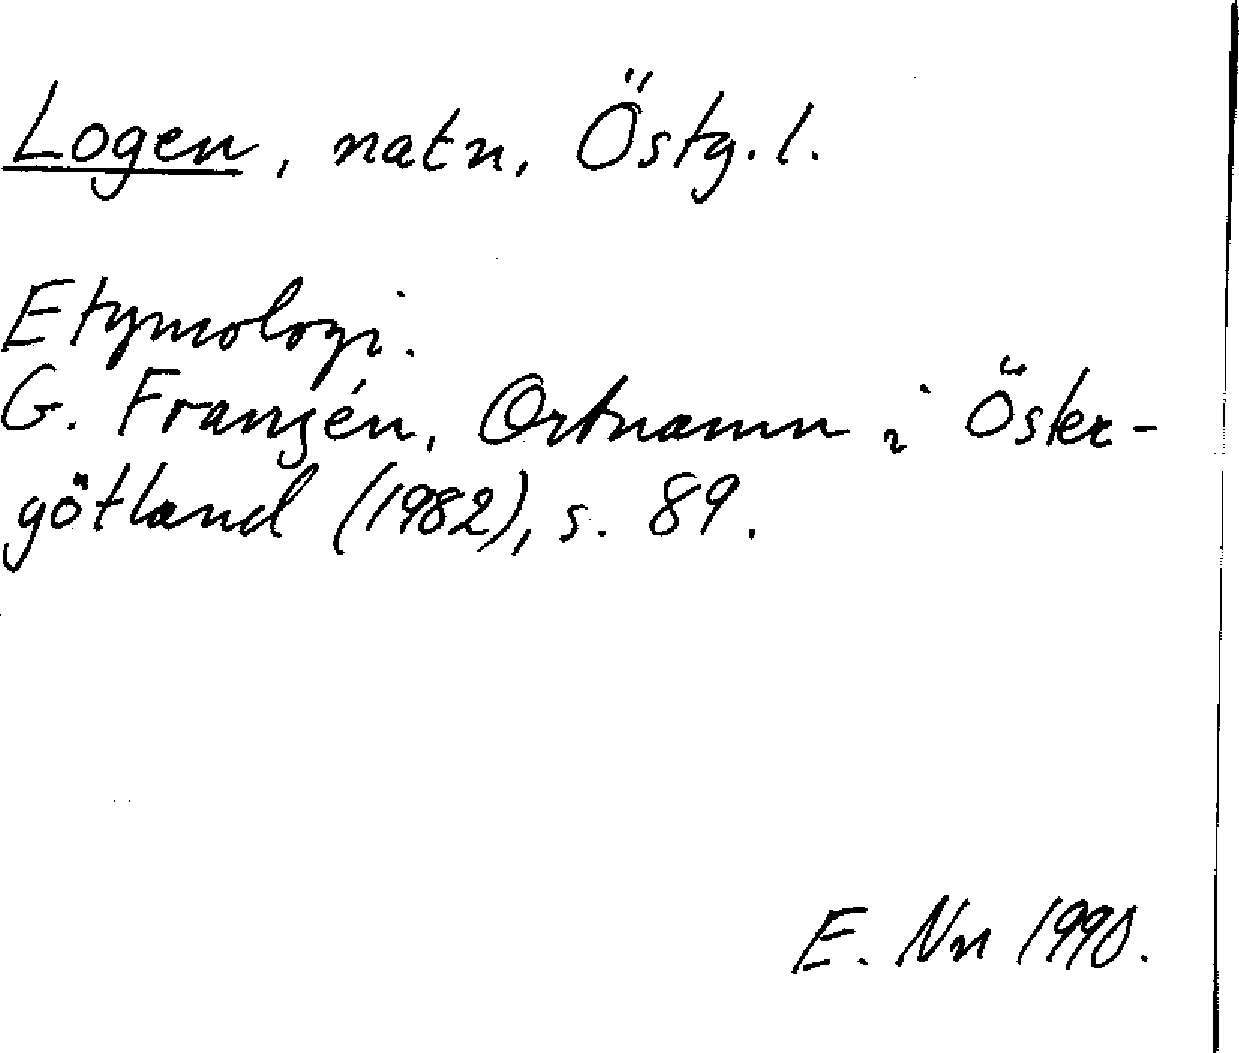 Logen, natn, Östg. l.
Etymologi.
G. Franzén, Ortnamn i Öster-
götland (1982), s. 89.
E. Nn 1990.